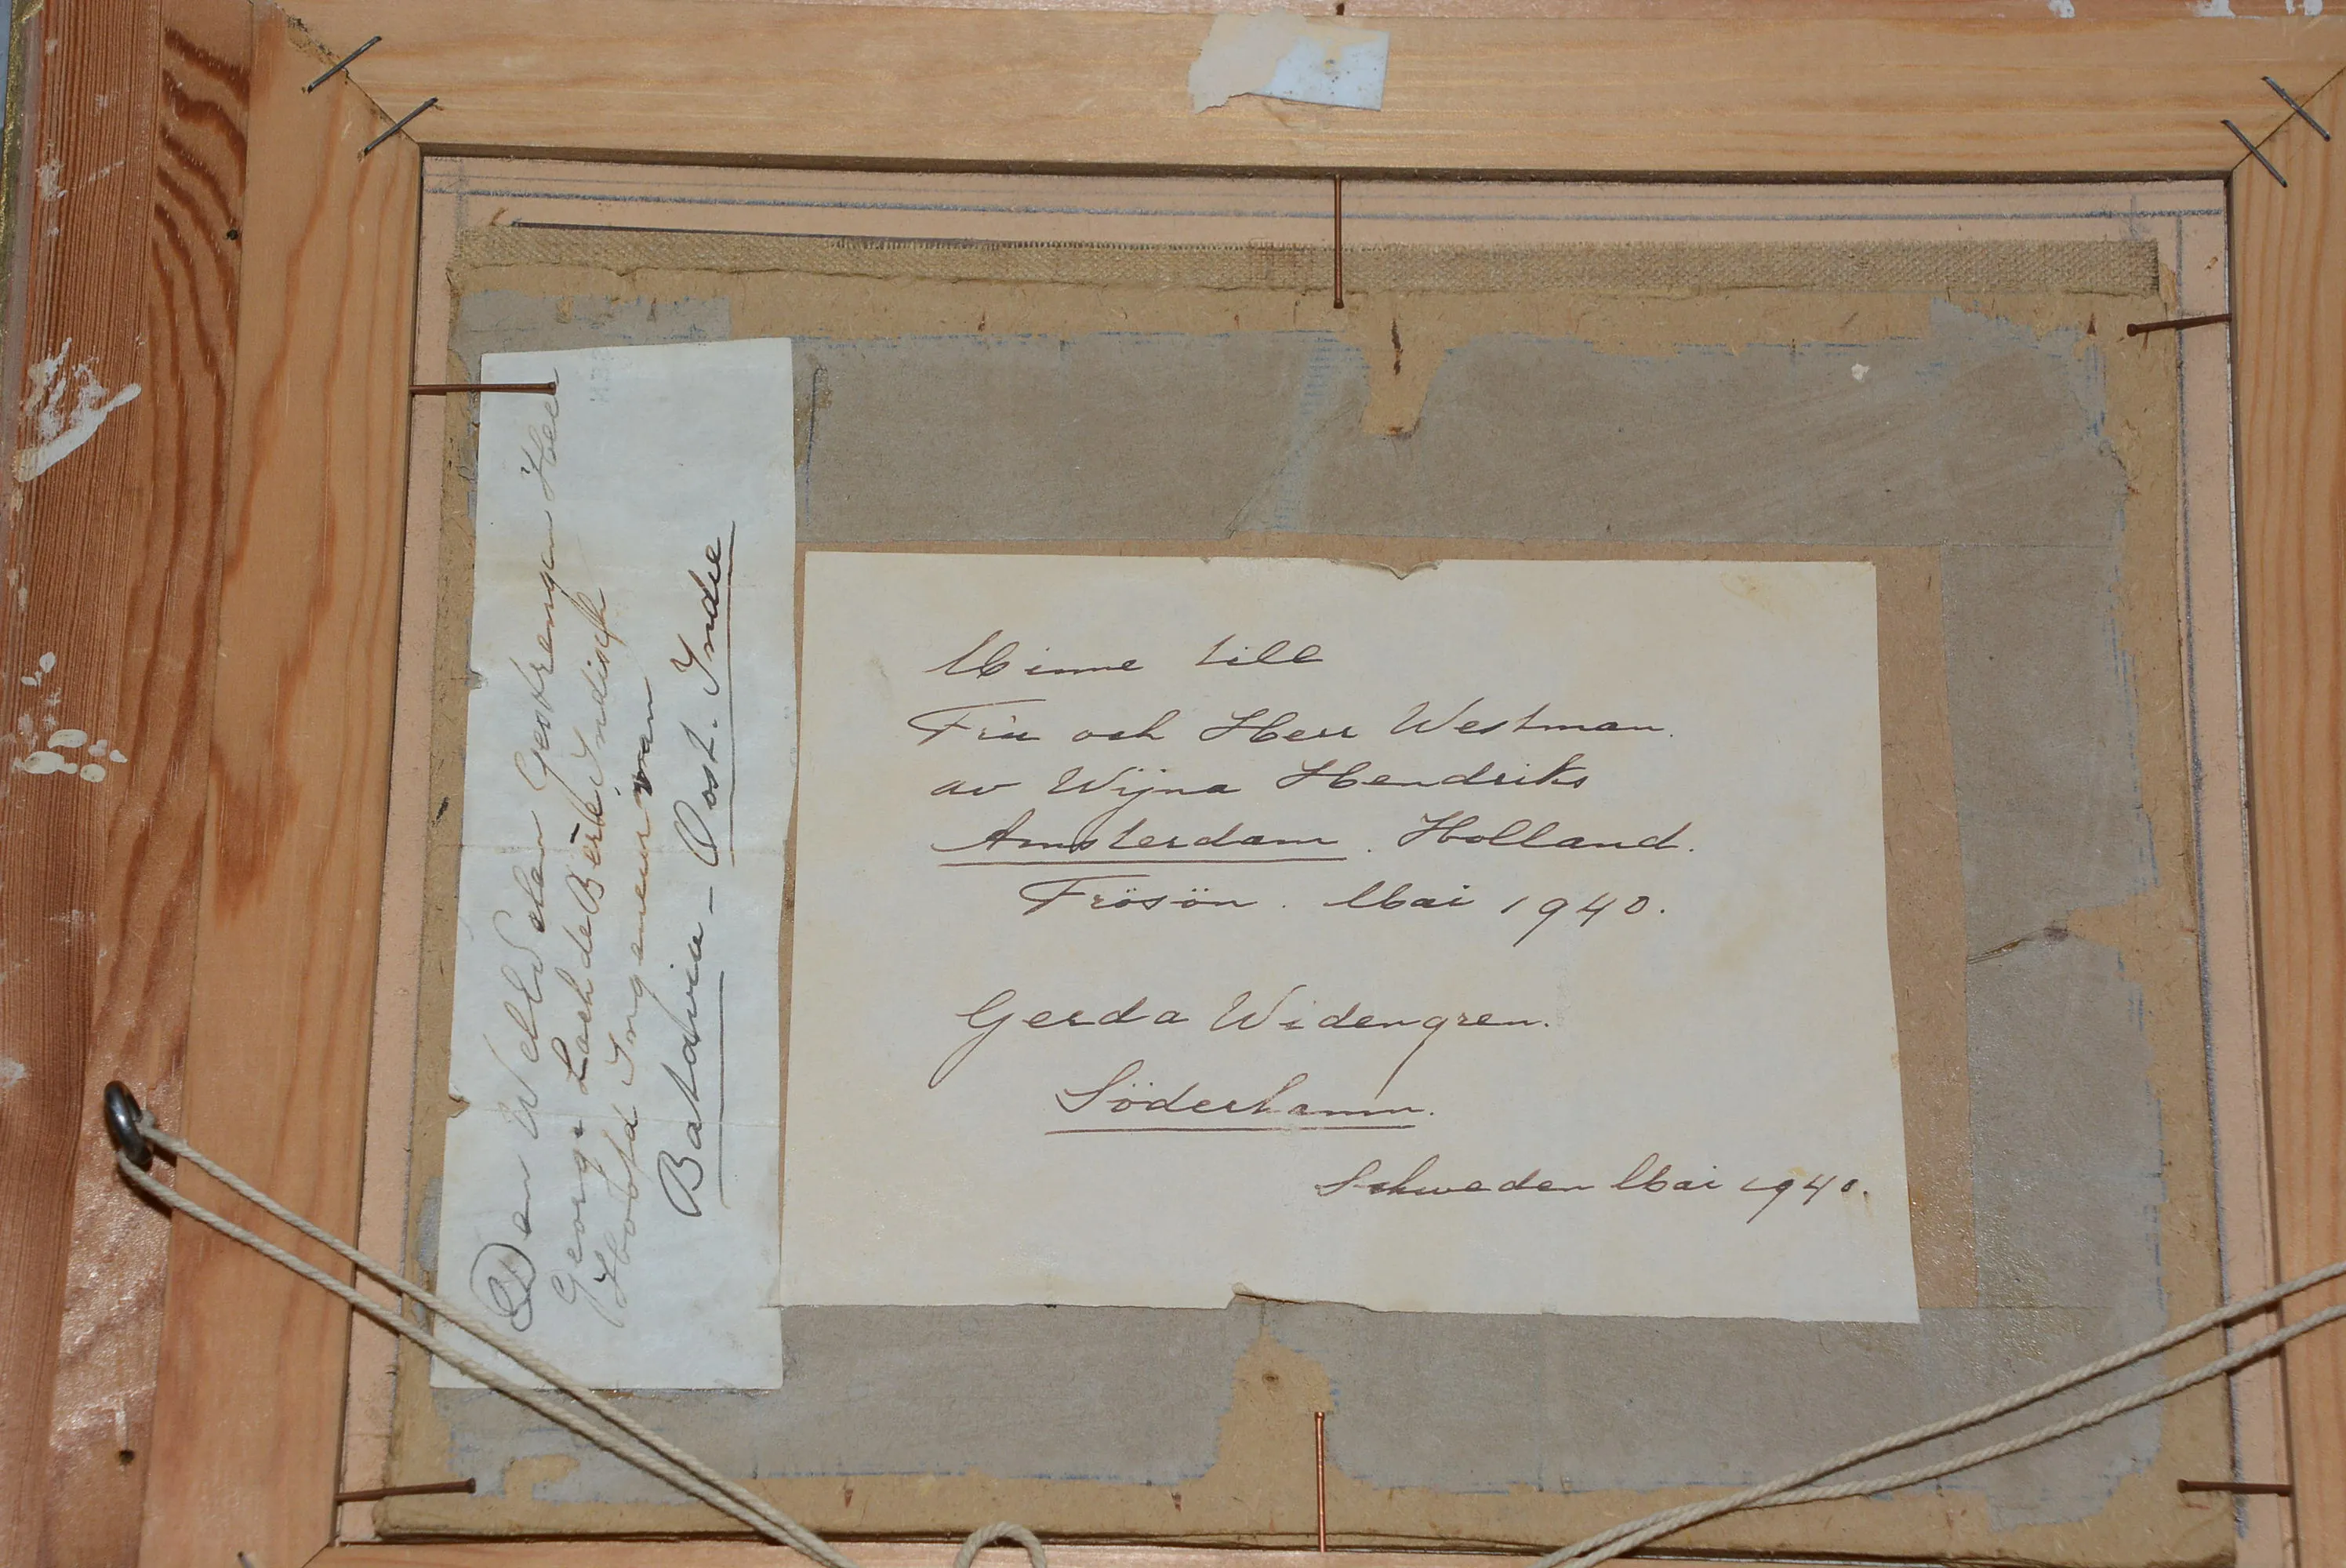 Den WelEdelen Gestrengen Heer
George Lach de Bère Indisch
Hoofd Ingenieur van
Batavia - Oost. Indie
Minne till
Fru och Herr Westman.
av Wijna Hendriks
Amsterdam. Holland.
Frösön. Mai 1940.
Gerda Widengren.
Söderhamn.
Schweden Mai 1940.